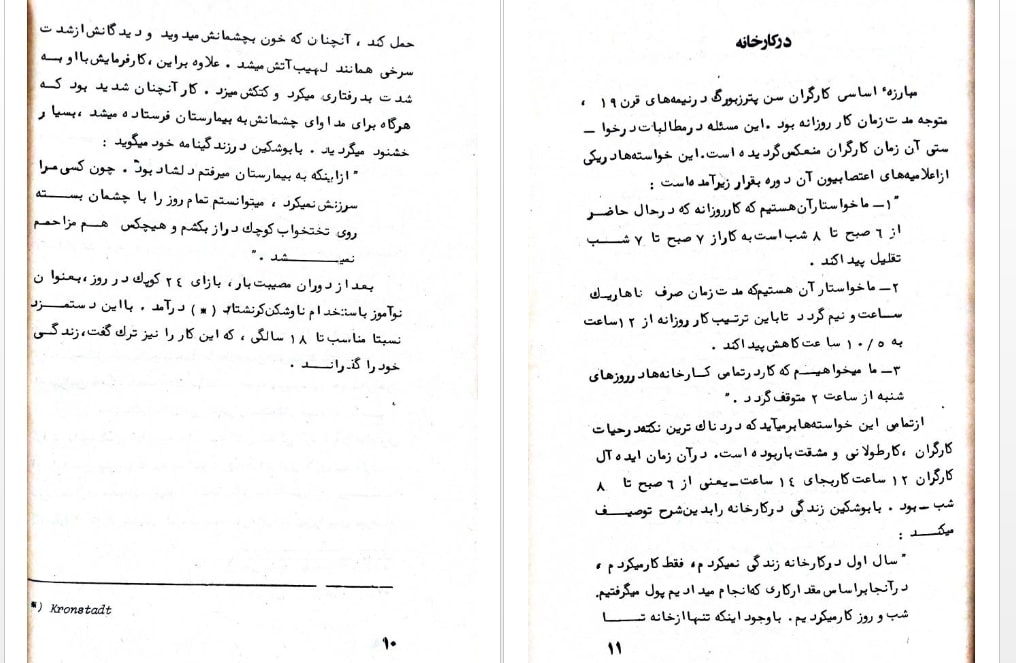 حمل کند ، آنچنان که خون بچشمانش میدوید و دیدگانش ازشدت
سرخی همانند لهیب آتش میشد . علاوه براین ، کارفرمایش با او بـه
شدت بدرفتاری میکرد و کتکش میزد . کار آنچنان شدید بود کـه
هرگاه برای مداوای چشمانش به بیمارستان فرستاده میشد ،بسیار
خشنود میگردید . بابوشکین درزندگینامه خود میگوید :
" ازاینکه به بیمارستان میرفتم دلشاد بود" . چون کسی مـرا
سرزنش نمیکرد ، میتوانستم تمام روز را با چشمان بستــه
روی تختخواب کوچک دراز بکشم و هیچکس هـم مزاحمـم
نمیـــــــشد . "
بعد از دوران مصیبت بار ، بازای ۲۴ کوپک در روز ،بعنوان
نوآموز باستخدام ناوشکن کرنشتات (*) درآمد . با این دستمــزد
نسبتا مناسب تا ۱۸ سالگی ، که این کار را نیز ترک گفت، زندگـی
خود را گذرانــد .
*) Kronstadt
۱۰
درکارخانه
مبارزهٔ اساسی کارگران سن پترزبورگ درنیمه‌های قرن ۱۹ ،
متوجه مدت زمان کار روزانه بود . این مسئله درمطالبات درخوا ـ
ستی آن زمان کارگران منعکس گردیده است. این خواسته‌ها دریکی
ازاعلامیه‌های اعتصابیون آن دوره بقرار زیرآمده است :
"۱ـ ما خواستار آن هستیم که کارروزانه که درحال حاضـر
از ۶ صبح تا ۸ شب است به کار از ۷ صبح تا ۷ شــب
تقلیل پیدا کند .
۲ـ ما خواستار آن هستیم که مدت زمان صرف ناهار یـک
ساعت و نیم گردد تا باین ترتیب کار روزانه از ۱۲ ساعت
به ۱۰/۵ ساعت کاهش پیدا کند .
۳ـ ما میخواهیـم که کار درتمامی کـارخانه‌ها درروزهای
شنبه از ساعت ۲ متوقف گردد . "
ازتمامی این خواسته‌ها برمیآید که دردناک ترین نکته درحیات
کارگران ، کارطولانی و مشقت باربوده است. درآن زمان ایده آل
کارگران ۱۲ ساعت کاربجای ۱۴ ساعت ـ یعنی از ۶ صبح تا ۸
شب ـ بود . بابوشکین زندگی درکارخانه را بدین شرح توصیـف
میکنــد :
" سال اول درکارخانه زندگی نمیکردم ، فقط کارمیکردم ،
درآنجا براساس مقدارکاری که انجام میدادیم پول میگرفتیم.
شب و روز کارمیکردیم . باوجود اینکه تنها ازخانه تــا
۱۱